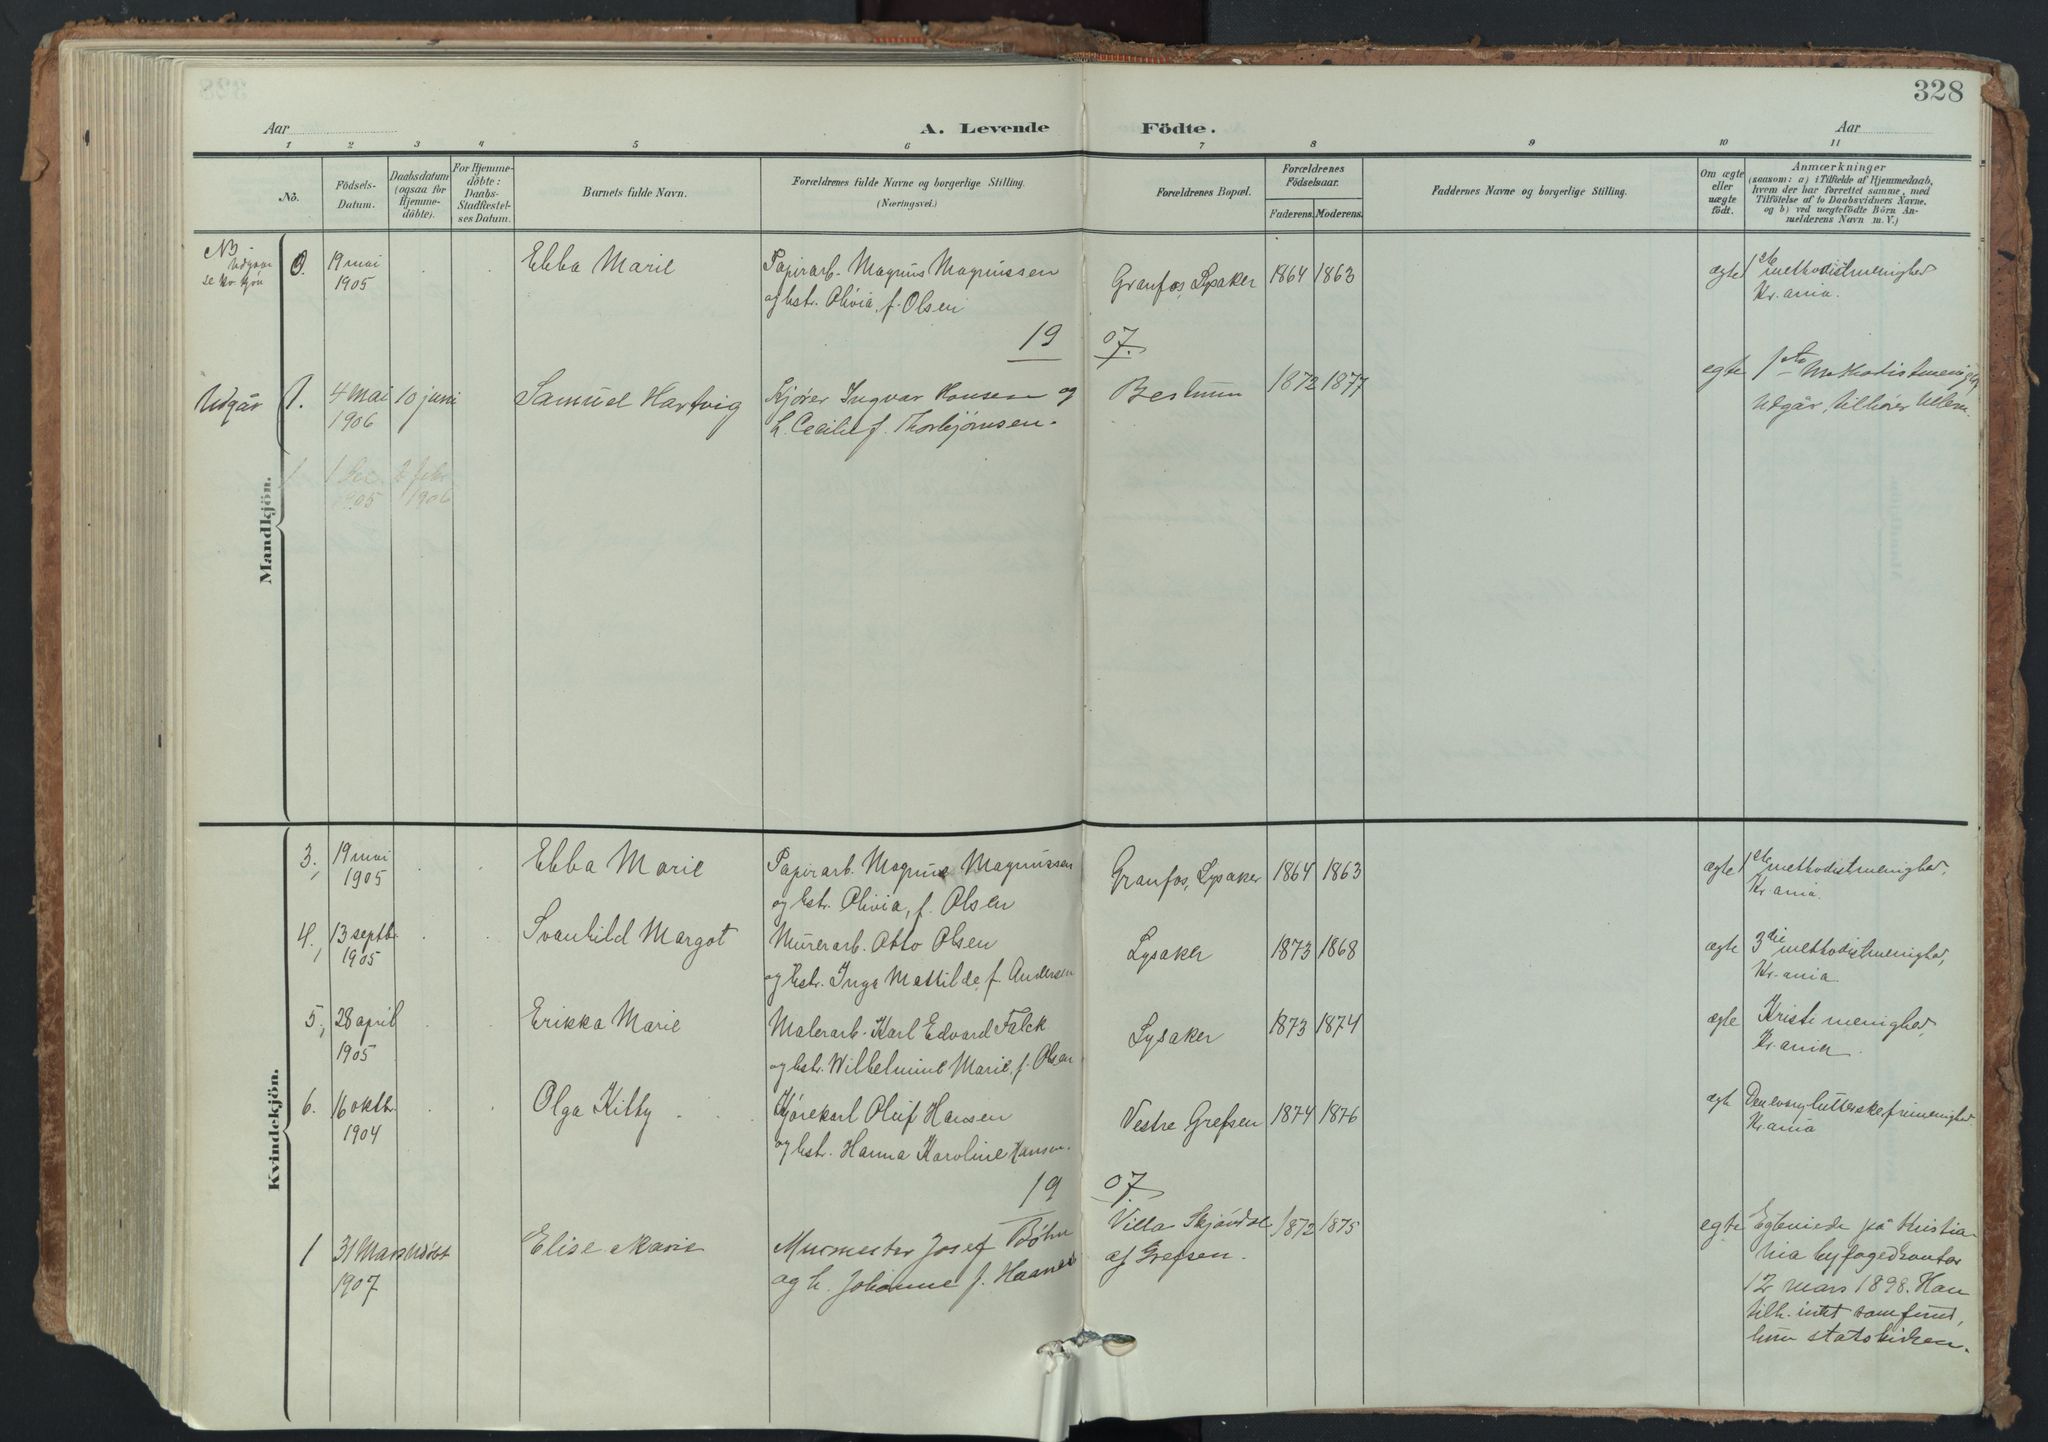 328
Aar
A. Levende Födte.
Aar
1 2 3 4 5 6 7 8 9 10 11
No.
Födsels-
Datum.
Daabsdatum
(ogsaa for
Hjemme-
døbte).
For Hjemme-
døbte:
Daabs-
Stadfæstel-
ses Datum.
Barnets fulde Navn.
Forældrenes fulde Navne og borgerlige Stilling.
(Næringsvei.)
Forældrenes Bopæl.
Forældrenes
Födselsaar.
Faderens. Moderens.
Faddernes Navne og borgerlige Stilling.
Om ægte
eller
uægte
født.
Anmærkninger
(saasom: a) i Tilfælde af Hjemmedaab,
hvem der har forrettet samme, med
Tilföielse af to Daabsvidners Navne,
og b) ved uægtefödte Börn An-
melderens Navn m. V.)
Mandkjön.
NB
se kv. kjøn
19 mai
1905
Ebba Marie
Papirarb. Magnus Magnussen
og hstr. Olivia, f. Olsen
Granfos, Lysaker
1864 1863
ægte
1ste methodistmenighed
Kr.ania.
19 07.
Udgår
1.
4 Mai
1906
10 juni
Samuel Hartvig
Kjører Ingvar Hansen og
h. Cecilie f. Thorbjørnsen.
Bestum
1872 1877
egte
1ste Methodistmenighed
Udgår, tilhører Ullern.
1
1 Dec
1905
2 febr
1906
Kvindekjön.
3,
19 mai
1905
Ebba Marie
Papirarb. Magnus Magnussen
og hstr. Olivia, f. Olsen
Granfos, Lysaker
1864 1863
ægte
1ste methodistmenighed,
Kr.ania.
4.,
13 septbr.
1905
Svanhild Margot
Murerarb. Otto Olsen
og hstr. Inga Mathilde, f. Andersen
Lysaker
1873 1868
ægte
3die methodistmenighed,
Kr.ania.
5,
28 april
1905
Erikka Marie
Malerarb. Karl Edvard Falck
og hstr. Wilhelmine Marie, f. Olsen
Lysaker
1873 1874
ægte
Kristi menighed,
Kr.ania.
6.
16 oktbr.
1904
Olga Kitty
Kjørekarl Oluf Hansen
og hstr. Hanna Karoline Hansen.
Vestre Grefsen
1874 1876
ægte
Den evang lutterske frimenighed
Kr.ania
19 07.
1
31 Mars
1907
udøbt
Elise Marie
Murmester Josef Bøhn
og h. Johanne f. Haanes
Villa Skjøndal
af Grefsen.
1872 1875
egte
Egteviede på Kristia-
nia byfogedkontor
12 mars 1898. Han
tilh. intet samfund,
hun statskirken.